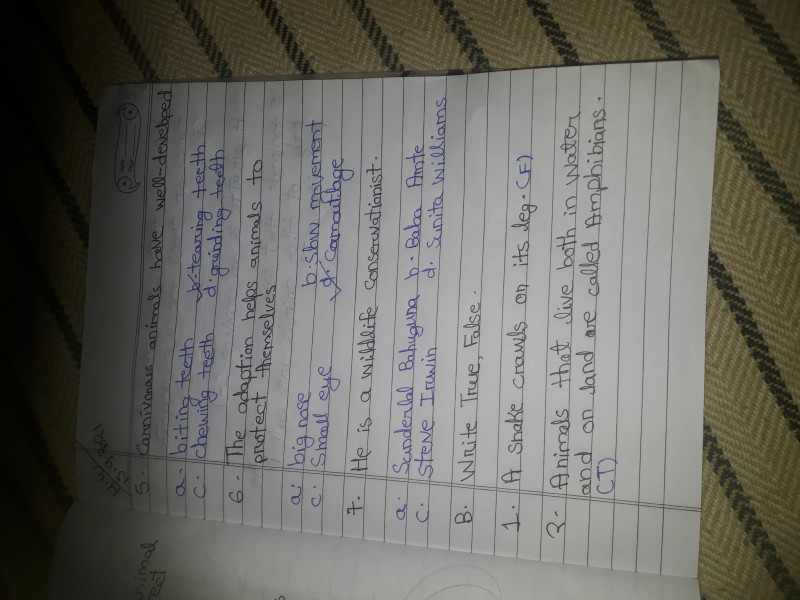 H.W.
5. Carnivorous animals have well-developed
a. biting teeth b. tearing teeth
c. chewing teeth d. grinding teeth
6. The adaption helps animals to
protect themselves
a. big nose b. slow movement
c. Small eye d. Camoutlage
7. He is a wildlife conservationist.
a. Sunderlal Bahuguna b. Baba Amte
c. Steve Irwin d. Sunita Williams
B. Write True, False.
1. A snake crawls on its leg. (F)
2. Animals that live both in water
and on land are called Amphibians.
(T)
nimal